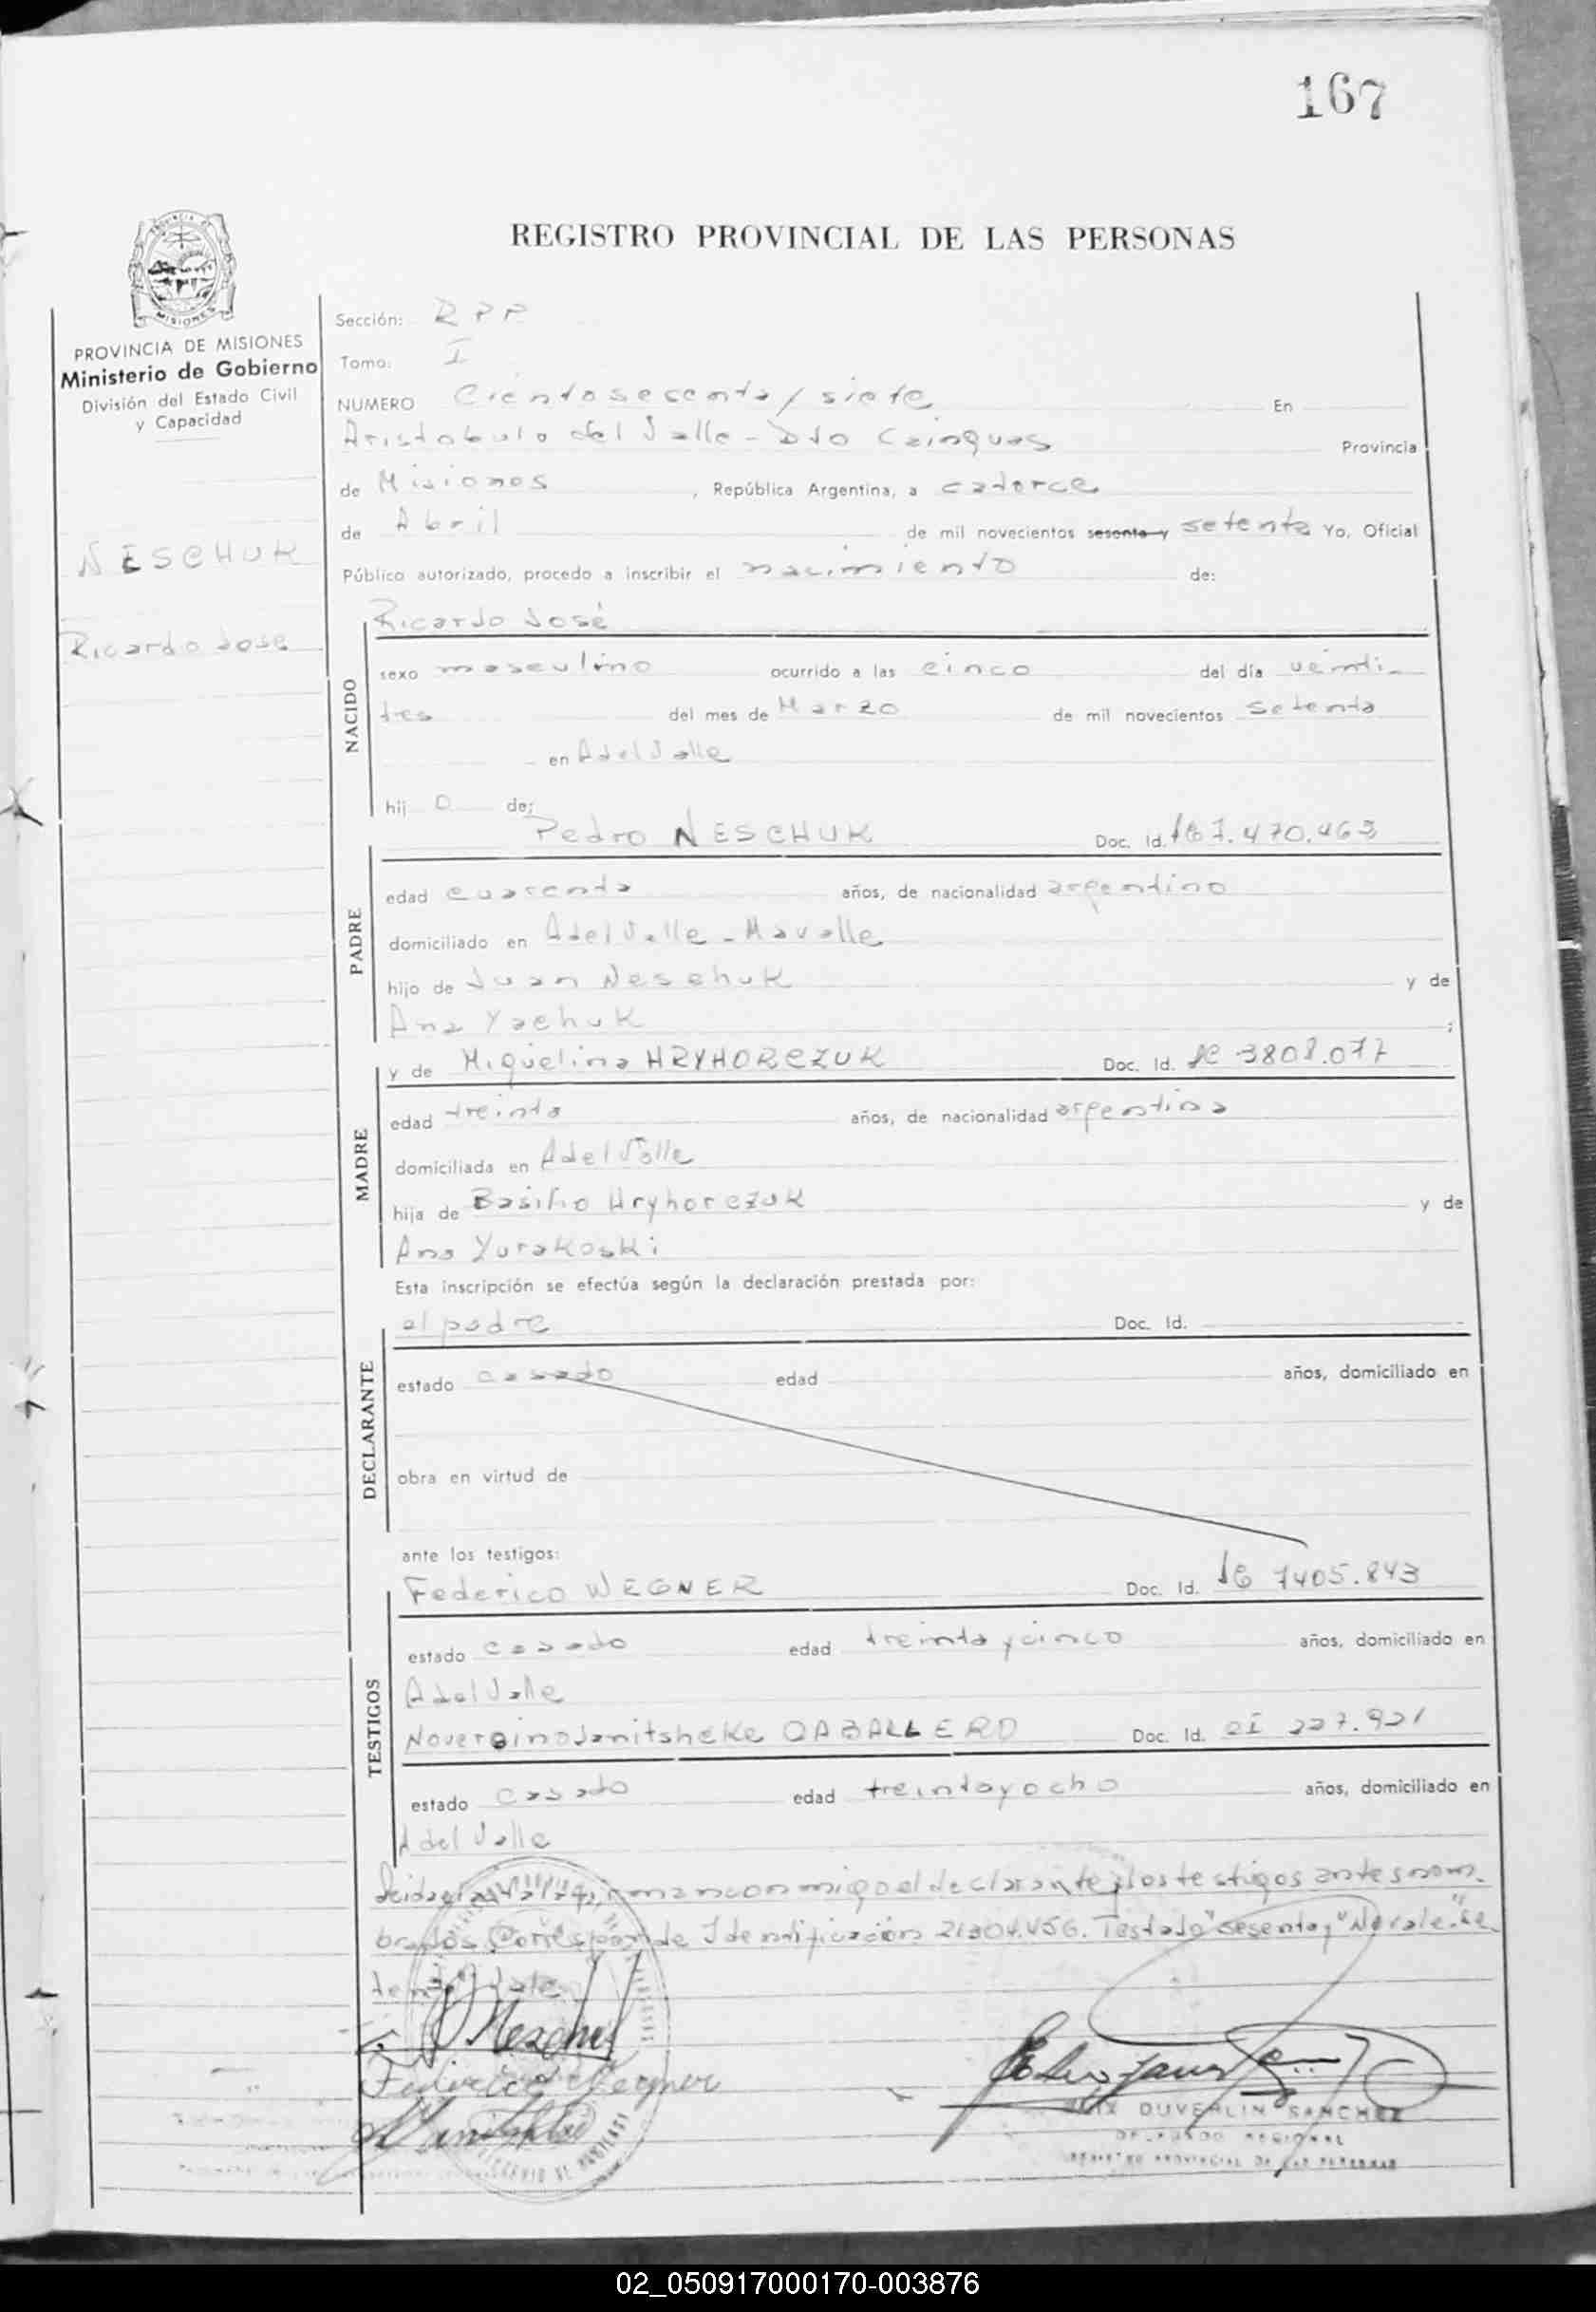 167
REGISTRO PROVINCIAL DE LAS PERSONAS
PROVINCIA DE MISIONES
Ministerio de Gobierno
División del Estado Civil
y Capacidad
NESCHUK
Ricardo José
Sección: RPP
Tomo: I
NUMERO Ciento sesenta y siete En
Aristobulo del Valle - Dto Cainguas Provincia
de Misiones, República Argentina, a catorce
de Abril de mil novecientos sesenta y setenta Yo, Oficial
Público autorizado, procedo a inscribir el nacimiento de:
NACIDO
Ricardo José
sexo masculino ocurrido a las cinco del día veinti-
tres del mes de Marzo de mil novecientos setenta
en A del Valle
hijo de:
PADRE
Pedro NESCHUK Doc. Id. 7.470.463
edad cuarenta años, de nacionalidad argentino
domiciliado en A del Valle - Mavalle
hijo de Juan Neschuk y de
Ana Yachuk;
MADRE
y de Miguelina HRYHORCZUK Doc. Id. LC 3808.077
edad treinta años, de nacionalidad argentina
domiciliada en A del Valle
hija de Basilio Hryhorczuk y de
Ana Yurakoski
Esta inscripción se efectúa según la declaración prestada por:
DECLARANTE
el padre Doc. Id.
estado casado edad años, domiciliado en
obra en virtud de
ante los testigos:
TESTIGOS
Federico WEGNER Doc. Id. 7405.843
estado casado edad treinta y cinco años, domiciliado en
A del Valle
CABALLERO Doc. Id. CI 227.921
estado casado edad treinta y ocho años, domiciliado en
A del Valle
Leida el acta firman conmigo el declarante y los testigos antes nom-
brados. Corresponde Identificación 21.304.456. Testado "sesenta y" No vale. "Se
tenta" Vale
Federico Wegner
DUVERLIN SANCHEZ
REGISTRO PROVINCIAL DE LAS PERSONAS
02_050917000170-003876